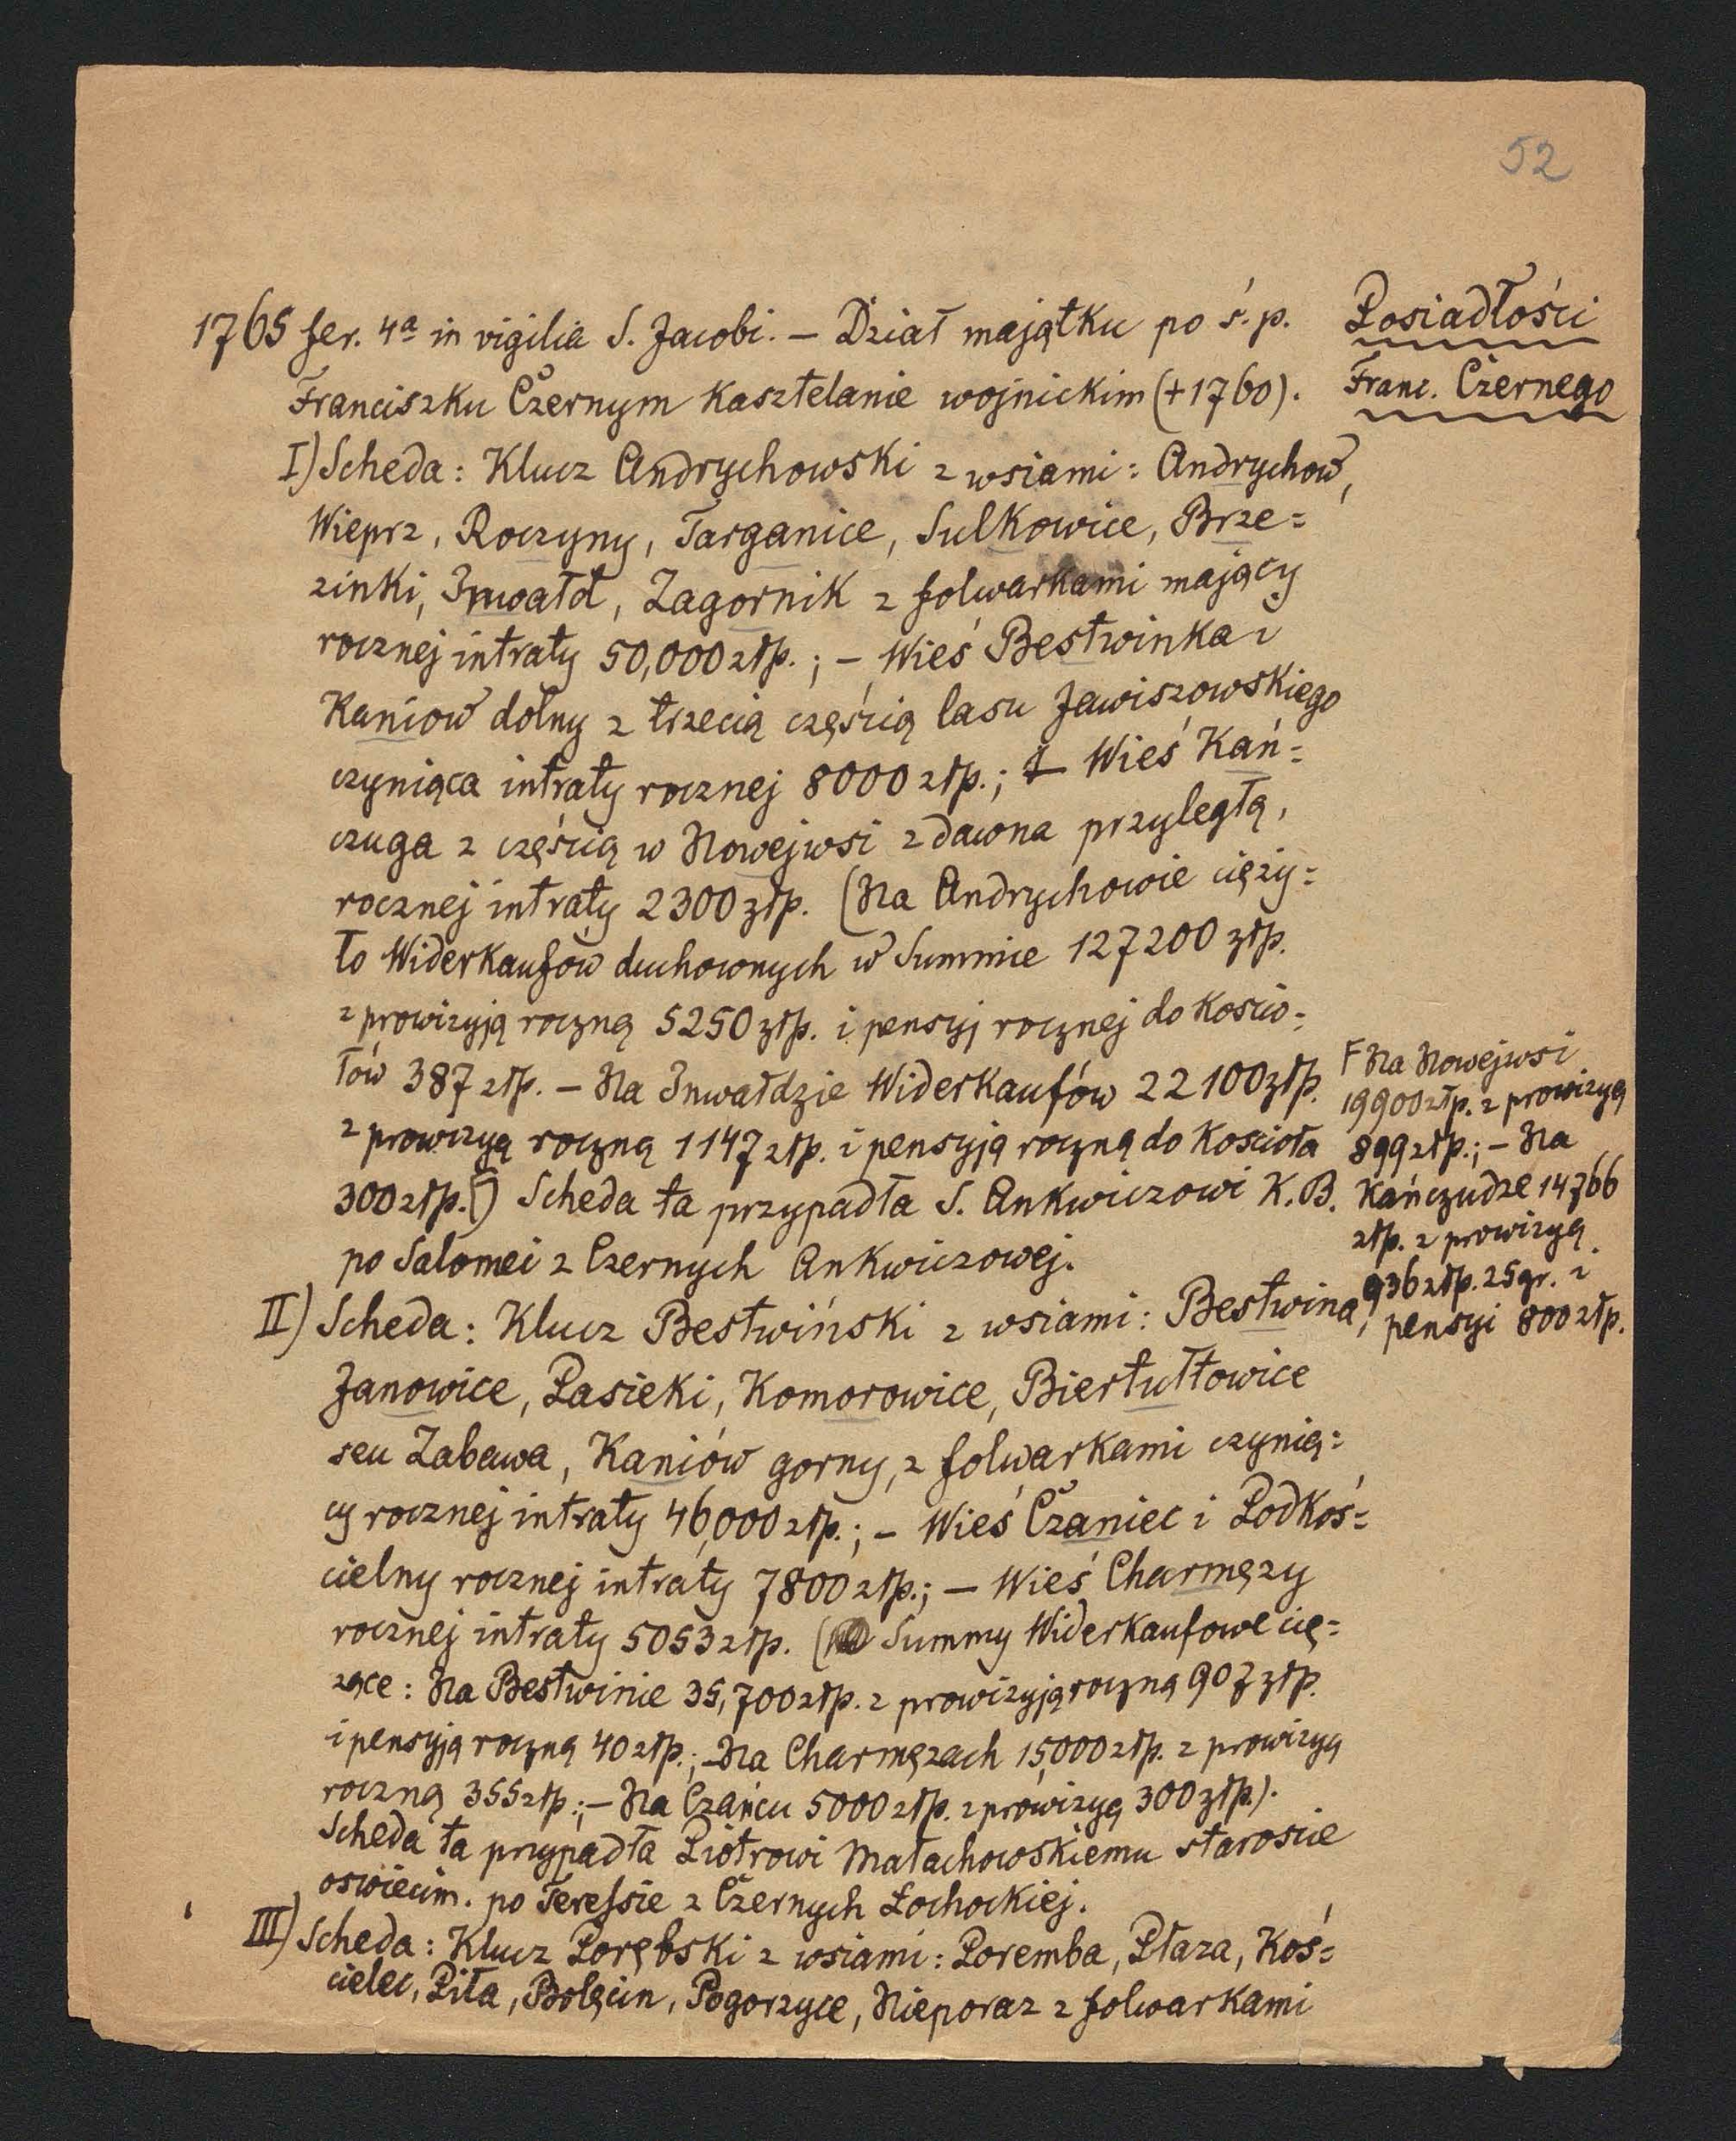 52
Posiadłości
Franc. Czernego
1765 fer. 4ª in vigilia S. Jacobi. – Dział majątku po ś. p.
Franciszku Czernym Kasztelanie wojnickim (+1760).
I) Scheda: Klucz Andrychowski z wsiami: Andrychow,
Wieprz, Roczyny, Targanice, Sulkowice, Brze=
zinki, Inwałd, Zagornik z folwarkami mający
rocznej intraty 50,000 złp.; – Wieś Bestwinka i
Kaniow dolny z trzecią częścią lasu Jawiszowskiego
czyniąca intraty rocznej 8000 złp.; – Wieś Kań=
czuga z częścią w Nowejwsi zdawna przyległą,
rocznej intraty 2300 złp. (Na Andrychowie cięży=
ło Widerkaufow duchownych w Summie 127200 złp.
z prowizyją roczną 5250 złp. i pensyj rocznej do Kościo=
łów 387 złp. – Na Inwałdzie Widerkaufów 22100 złp.
z prowizyą roczną 1147 złp. i pensyją roczną do Kościoła
300 złp.F) Scheda ta przypadła S. Ankwiczowi K.B.
po Salomei z Czernych Ankwiczowej.
F Na Nowejwsi
19900 złp. z prowizyą
899 złp.; – Na
Kańczudze 14766
złp. z prowizyą
936 złp. 25 gr. i
pensyi 800 złp.
II) Scheda: Klucz Bestwiński z wsiami: Bestwina,
Janowice, Pasieki, Komorowice, Biertułtowice
seu Zabawa, Kaniów gorny, z folwarkami czynią=
cy rocznej intraty 46,000 złp.; – Wieś Czaniec i Podkoś=
cielny rocznej intraty 7800 złp.; – Wieś Charmęzy
rocznej intraty 5053 złp. ( Summy Widerkaufowe cię=
żące: Na Bestwinie 35,700 złp. z prowizyją roczną 907 złp.
i pensyją roczną 40 złp.; – Na Charmęzach 15,000 złp. z prowizyą
roczną 355 złp.; – Na Czańcu 5000 złp. z prowizyą 300 złp.).
Scheda ta przypadła Piotrowi Małachowskiemu staroście
oswiecim. po Teressie z Czernych Łochockiej.
III) Scheda: Klucz Porębski z wsiami: Poremba, Płaza, Koś=
cielec, Piła, Bolęcin, Pogorzyce, Nieporaz z folwarkami